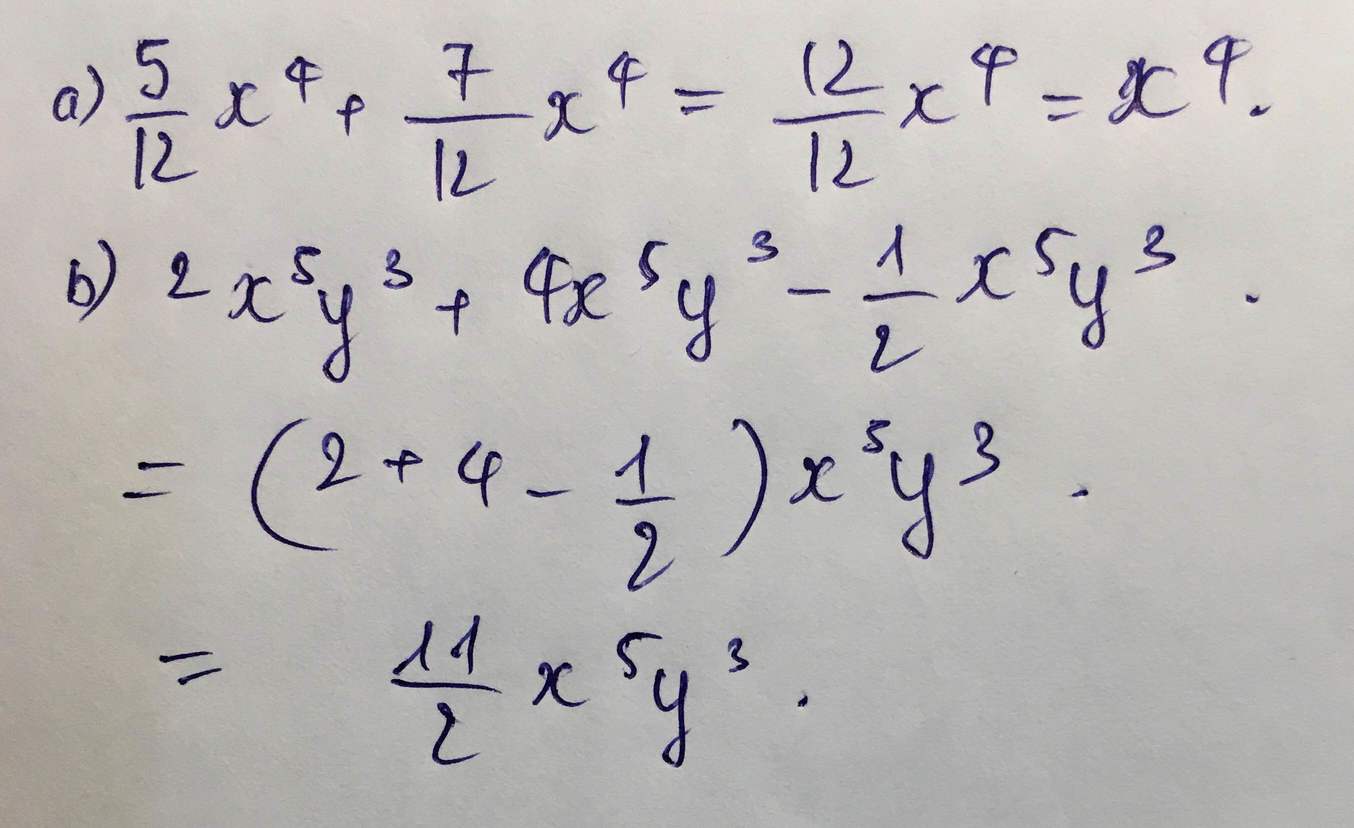 a) 5/12 x⁴ + 7/12 x⁴ = 12/12 x⁴ = x⁴.
b) 2x⁵y³ + 4x⁵y³ - 1/2 x⁵y³.
= (2 + 4 - 1/2) x⁵y³.
= 11/2 x⁵y³.